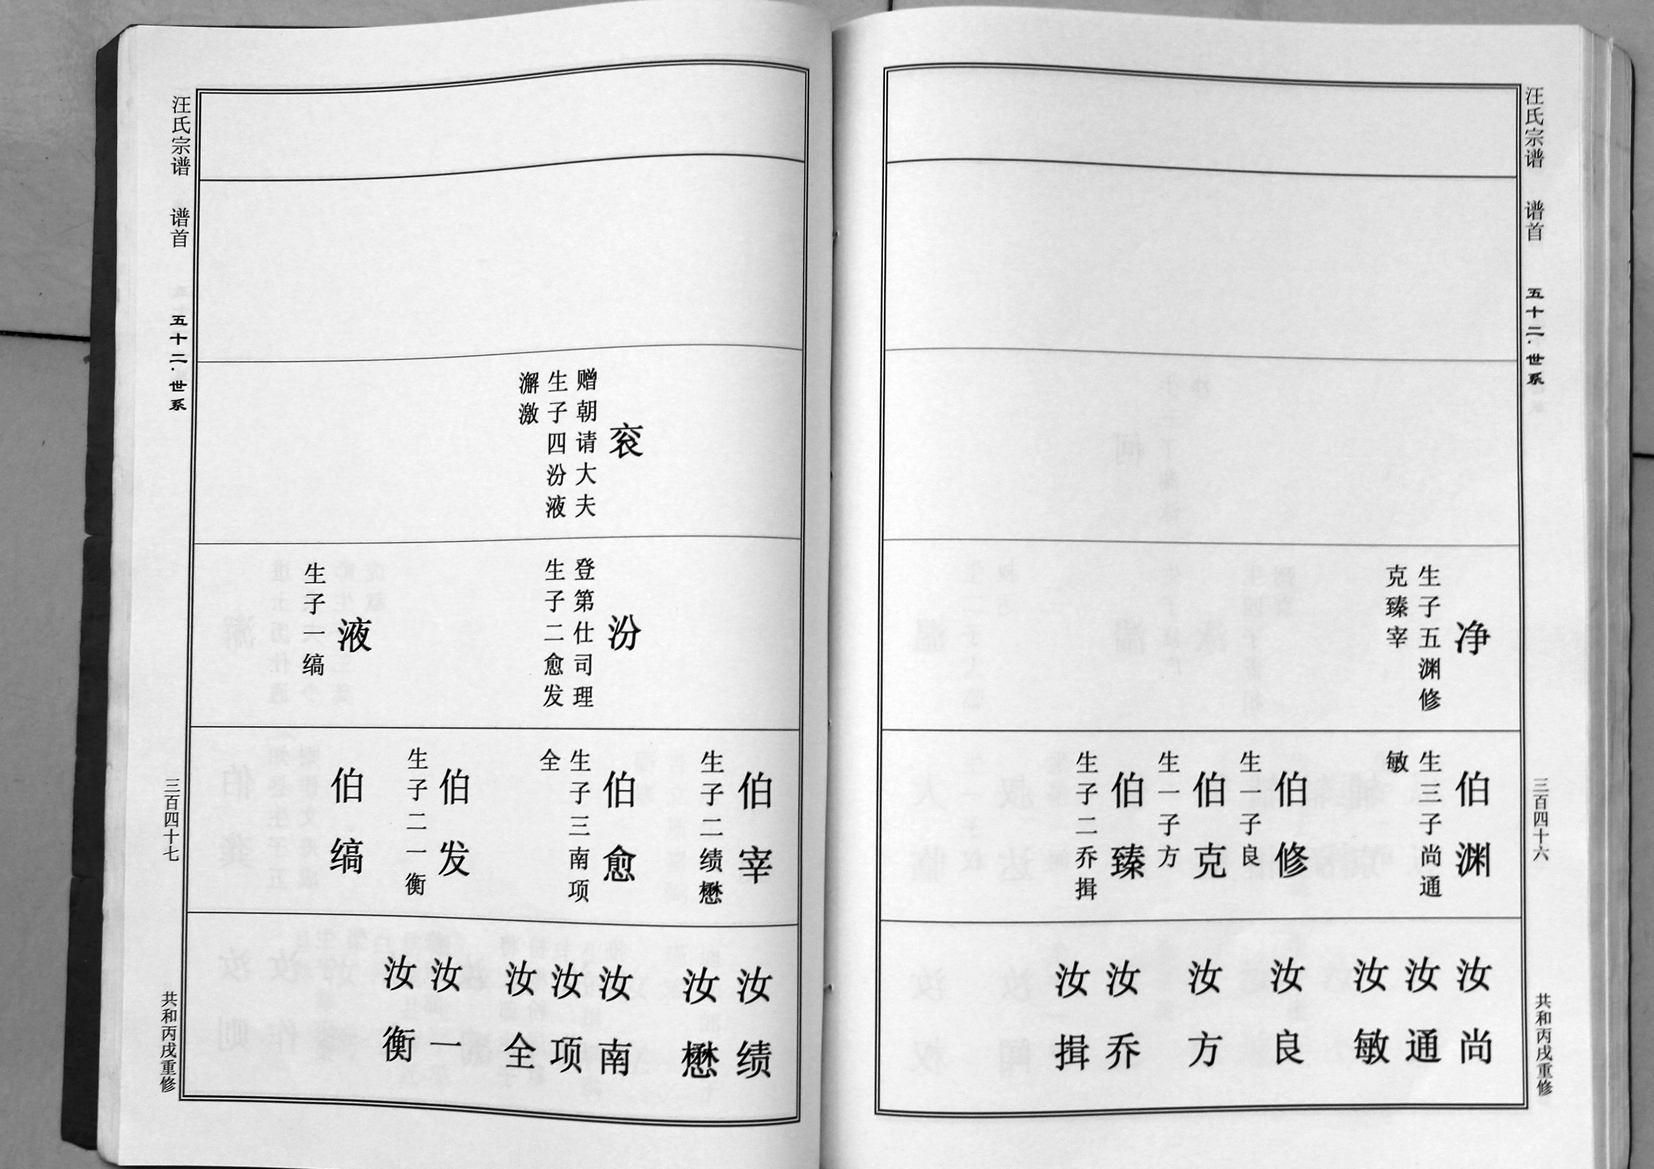 汪氏宗谱 谱首 五十二·世系 三百四十六 共和丙戌重修
净
生子五渊修
克臻宰
伯渊
生三子尚通
敏
伯修
生一子良
伯克
生一子方
伯臻
生子二乔揖
汝尚
汝通
汝敏
汝良
汝方
汝乔
汝揖
衮
赠朝请大夫
生子四汾液
澥激
汾
登第仕司理
生子二愈发
液
生子一缟
伯宰
生子二绩懋
伯愈
生子三南项
全
伯发
生子二一衡
伯缟
汝绩
汝懋
汝南
汝项
汝全
汝一
汝衡
汪氏宗谱 谱首 五十二·世系 三百四十七 共和丙戌重修